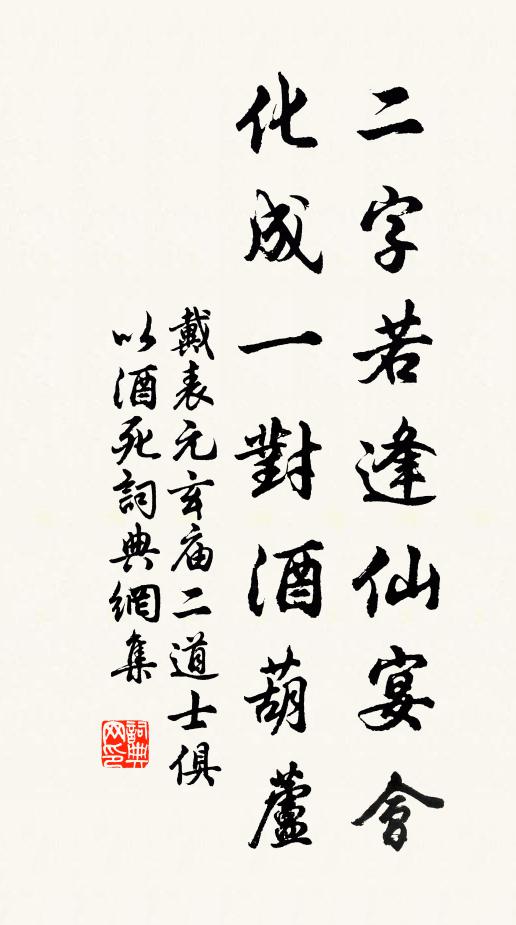 二字若逢仙宴會
化成一對酒葫蘆
戴表元玄庙二道士俱
以酒死詞典網集
詞典网印